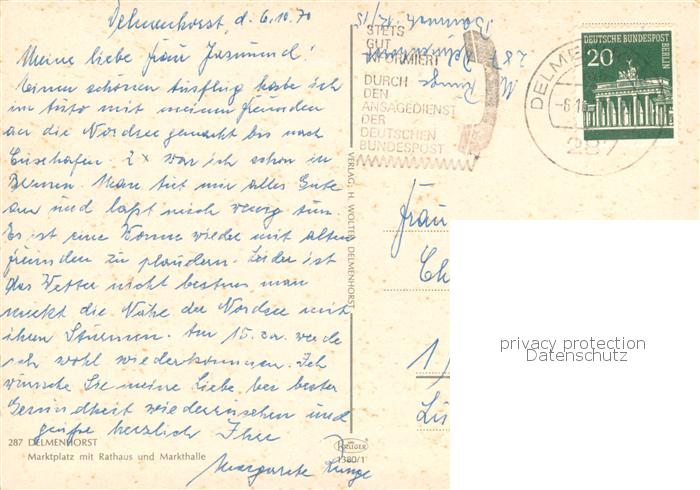 Delmenhorst, d. 6.10.70
Meine liebe Frau Jasmund!
Einen schönen Ausflug habe ich
im Auto mit meinen Freunden
an die Nordsee gemacht bis nach
Cuxhafen. 2 x war ich schon in
Bremen. Man tut mir alles Gute
an und laßt mich wenig tun.
Es ist eine Wonne wieder mit alten
Freunden zu plaudern. Leider ist
das Wetter nicht bestens man
merkt die Nähe der Nordsee mit
ihren Stürmen. Am 15. ca. werde
ich wohl wiederkommen. Ich
wünsche Sie meine Liebe, bei bester
Gesundheit wiederzusehen und
grüße herzlich Ihre
Margarete Runge
287 DELMENHORST
Marktplatz mit Rathaus und Markthalle
VERLAG, H. WOLTER DELMENHORST
KRÜGER
1380/1
M. Runge
287 Delmenhorst
12/15
STETS
GUT
INFORMIERT
DURCH
DEN
ANSAGEDIENST
DER
DEUTSCHEN
BUNDESPOST
DELME
-6.1
287
DEUTSCHE BUNDESPOST
BERLIN
20
Frau
Ch
1/
privacy protection
Datenschutz